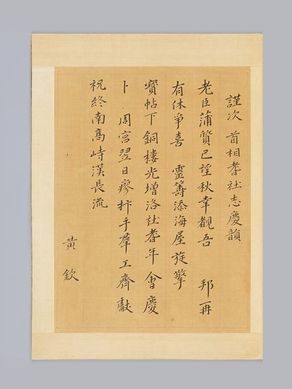 謹次 首相耆社志慶韻
老臣蒲質已望秋幸覩吾 邦再
有休爭喜 靈籌添海屋旋擎
寶帖下銅樓光增洛社耆年會慶
卜 周宮翌日瘳抃手羣工齊獻
祝終南高峙漢長流
黃欽